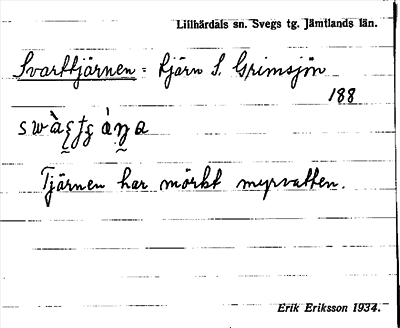 Lillhärdals sn. Svegs tg. Jämtlands län.
Svarttjärnen = tjärn S. Grimsjön
188
Tjärnen har mörkt myrvatten.
Erik Eriksson 1934.